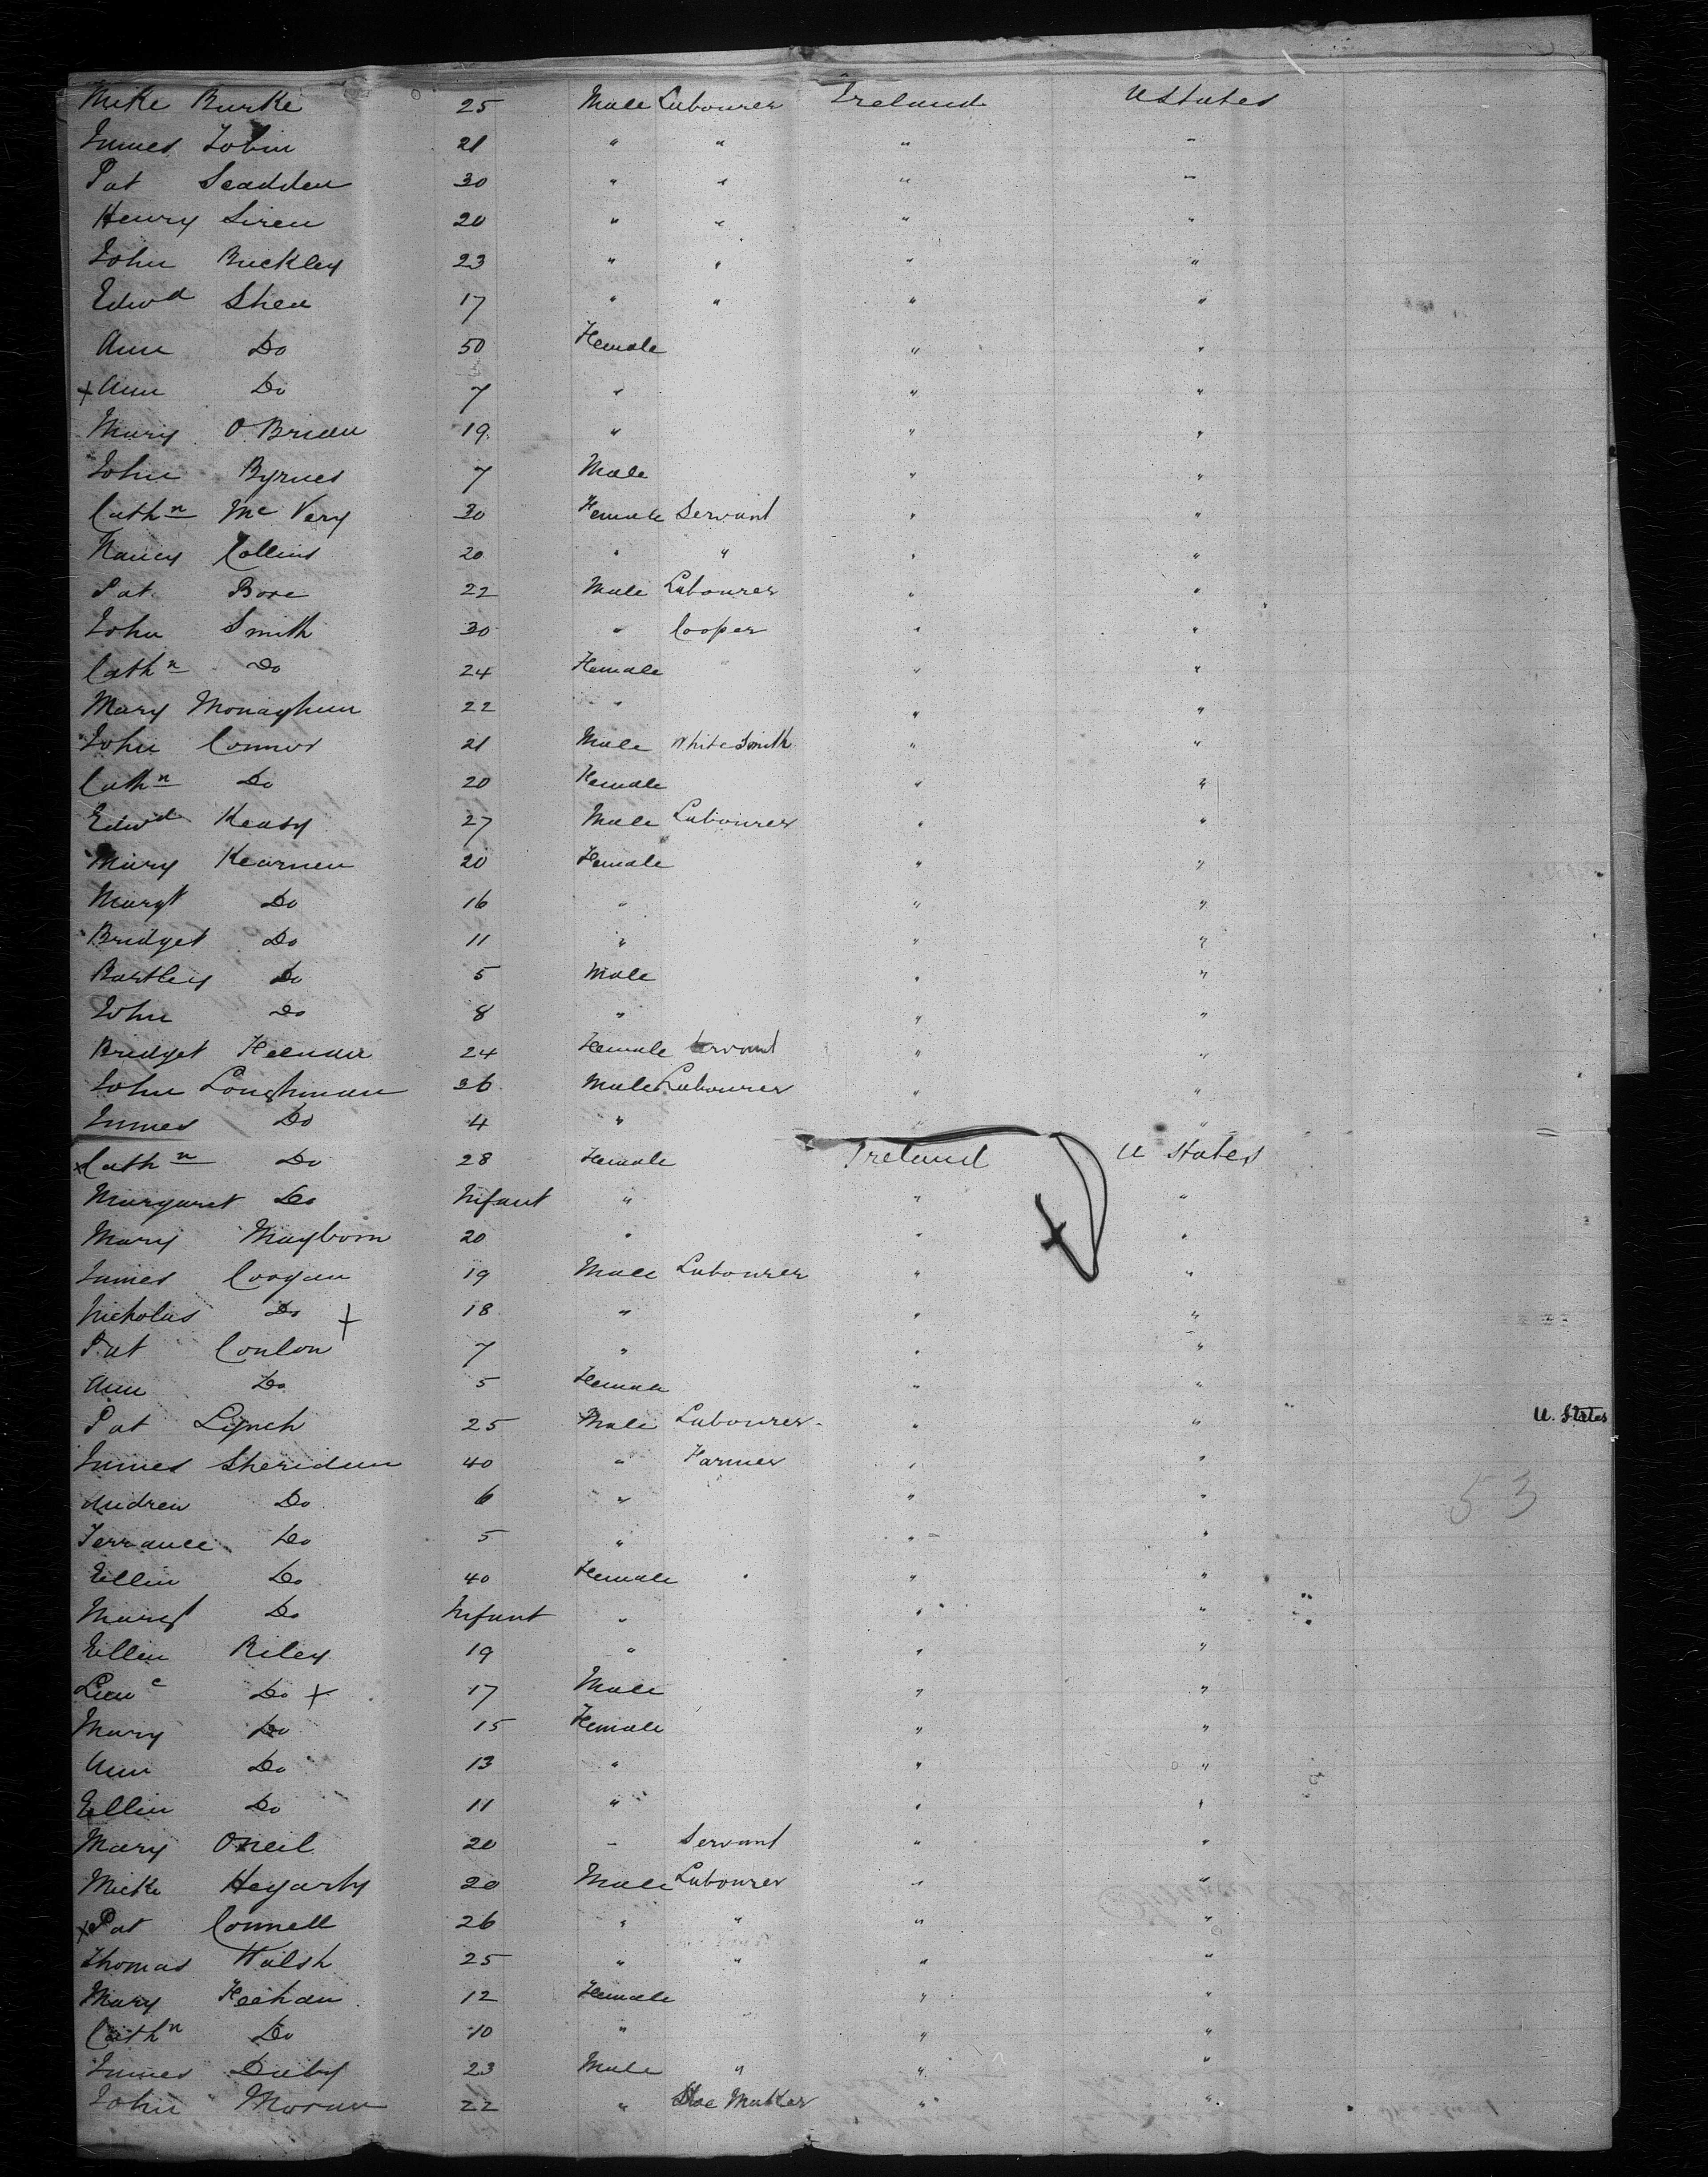 Mike Burke 25 Male Labourer Ireland U States
James Tobin 21 " " " "
Pat Scadden 30 " " " "
Henry Siren 20 " " " "
John Buckley 23 " " " "
Edwd Shea 17 " " " "
Ann Do 50 Female " "
+ Ann Do 7 " " "
Mary O Brien 19 " " "
John Byrnes 7 Male " "
Cathn Mc Very 30 Female Servant " "
Nancy Collins 20 " " " "
Pat Bore 22 Male Labourer " "
John Smith 30 " Cooper " "
Cathn Do 24 Female " " "
Mary Monaghan 22 " " "
John Connor 21 Male White Smith " "
Cathn Do 20 Female " "
Edwd Keaty 27 Male Labourer " "
Mary Kearnen 20 Female " "
Margt Do 16 " " "
Bridget Do 11 " " "
Bartley Do 5 Male " "
John Do 8 " " "
Bridget Keenan 24 Female Servant " "
John Loughman 26 Male Labourer " "
James Do 4 " " "
x Cathn Do 28 Female Ireland U States
Margaret Do Infant " " "
Mary Mayborn 20 " " "
James Coogan 19 Male Labourer " "
Nicholas Do + 18 " " "
Pat Conlon 7 " " "
Ann Do 5 Female " "
Pat Lynch 25 Male Labourer " " U. States
James Sheridan 40 " Farmer " "
Andrew Do 6 " " "
53
Terrance Do 5 " " "
Ellin Do 40 Female " "
Margt Do Infant " " "
Ellen Riley 19 " " "
Lawc Do + 17 Male " "
Mary Do 15 Female " "
Ann Do 13 " " "
Ellin Do 11 " " "
Mary Oneil 20 " Servant " "
Mick Hegarty 20 Male Labourer " "
x Pat Connell 26 " " " "
Thomas Walsh 25 " " " "
Mary Keehan 12 Female " "
Cathn Do 10 " " "
James Duby 23 Male " " "
John Moran 22 " Shoe Maker " "